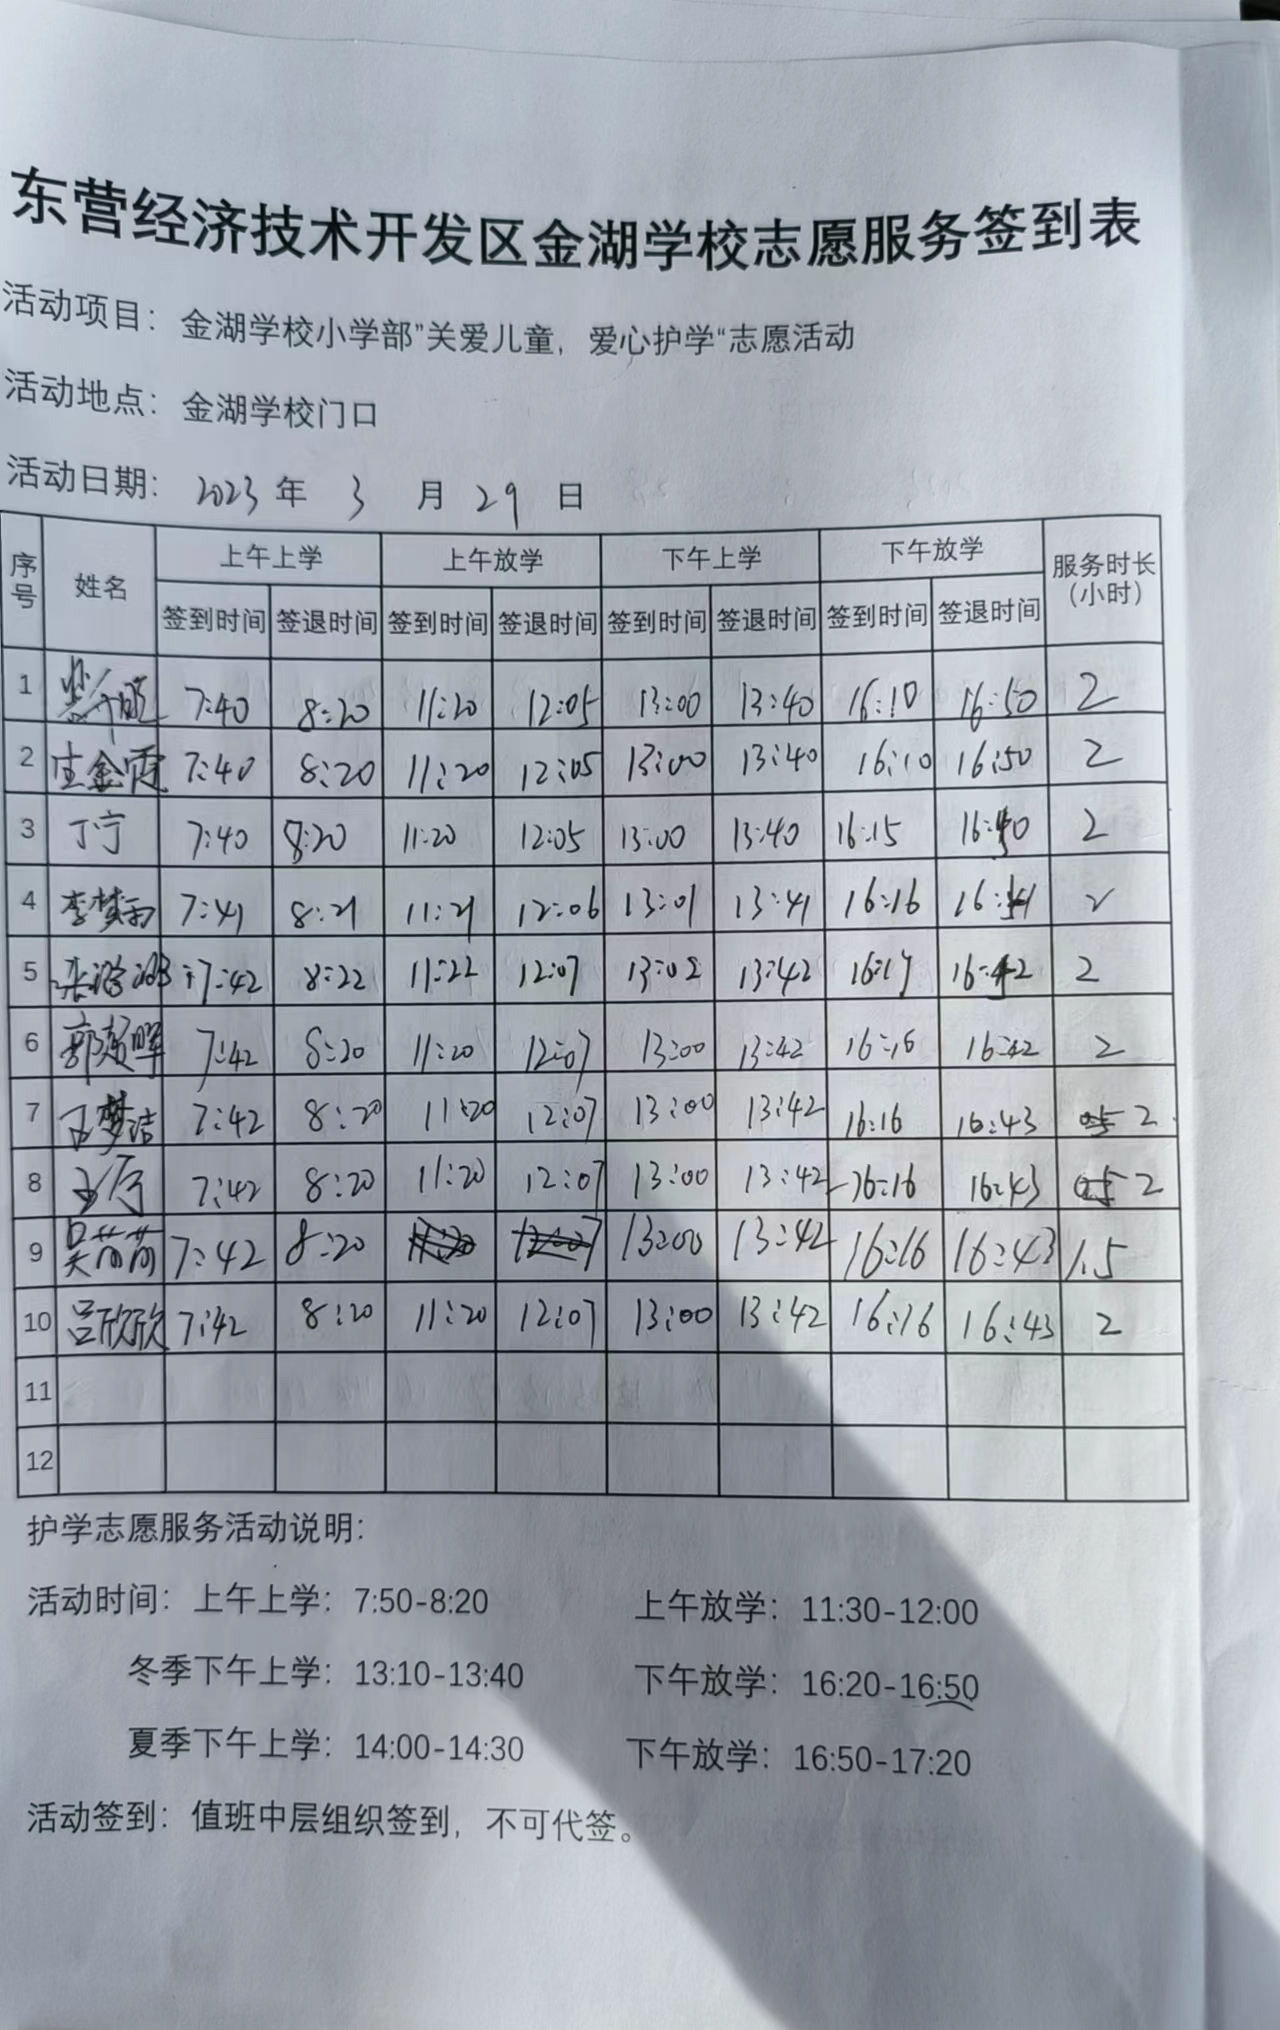 东营经济技术开发区金湖学校志愿服务签到表
活动项目：金湖学校小学部"关爱儿童，爱心护学"志愿活动
活动地点：金湖学校门口
活动日期：2023 年 3 月 29 日
序号 姓名 上午上学 上午放学 下午上学 下午放学 服务时长（小时）
签到时间 签退时间 签到时间 签退时间 签到时间 签退时间 签到时间 签退时间
1 7:40 8:20 11:20 12:05 13:00 13:40 16:10 16:50 2
2 生金霞 7:40 8:20 11:20 12:05 13:00 13:40 16:10 16:50 2
3 丁宁 7:40 8:20 11:20 12:05 13:00 13:40 16:15 16:40 2
4 李梦雨 7:41 8:21 11:21 12:06 13:01 13:41 16:16 16:41 2
5 7:42 8:22 11:22 12:07 13:02 13:42 16:17 16:42 2
6 郭 晖 7:42 8:20 11:20 12:07 13:00 13:42 16:16 16:42 2
7 王梦洁 7:42 8:20 11:20 12:07 13:00 13:42 16:16 16:43 2
8 7:42 8:20 11:20 12:07 13:00 13:42 16:16 16:43 2
9 吴苘苘 7:42 8:20 13:00 13:42 16:16 16:43 1.5
10 吕欣欣 7:42 8:20 11:20 12:07 13:00 13:42 16:16 16:43 2
11
12
护学志愿服务活动说明：
活动时间：上午上学：7:50-8:20 上午放学：11:30-12:00
冬季下午上学：13:10-13:40 下午放学：16:20-16:50
夏季下午上学：14:00-14:30 下午放学：16:50-17:20
活动签到：值班中层组织签到，不可代签。